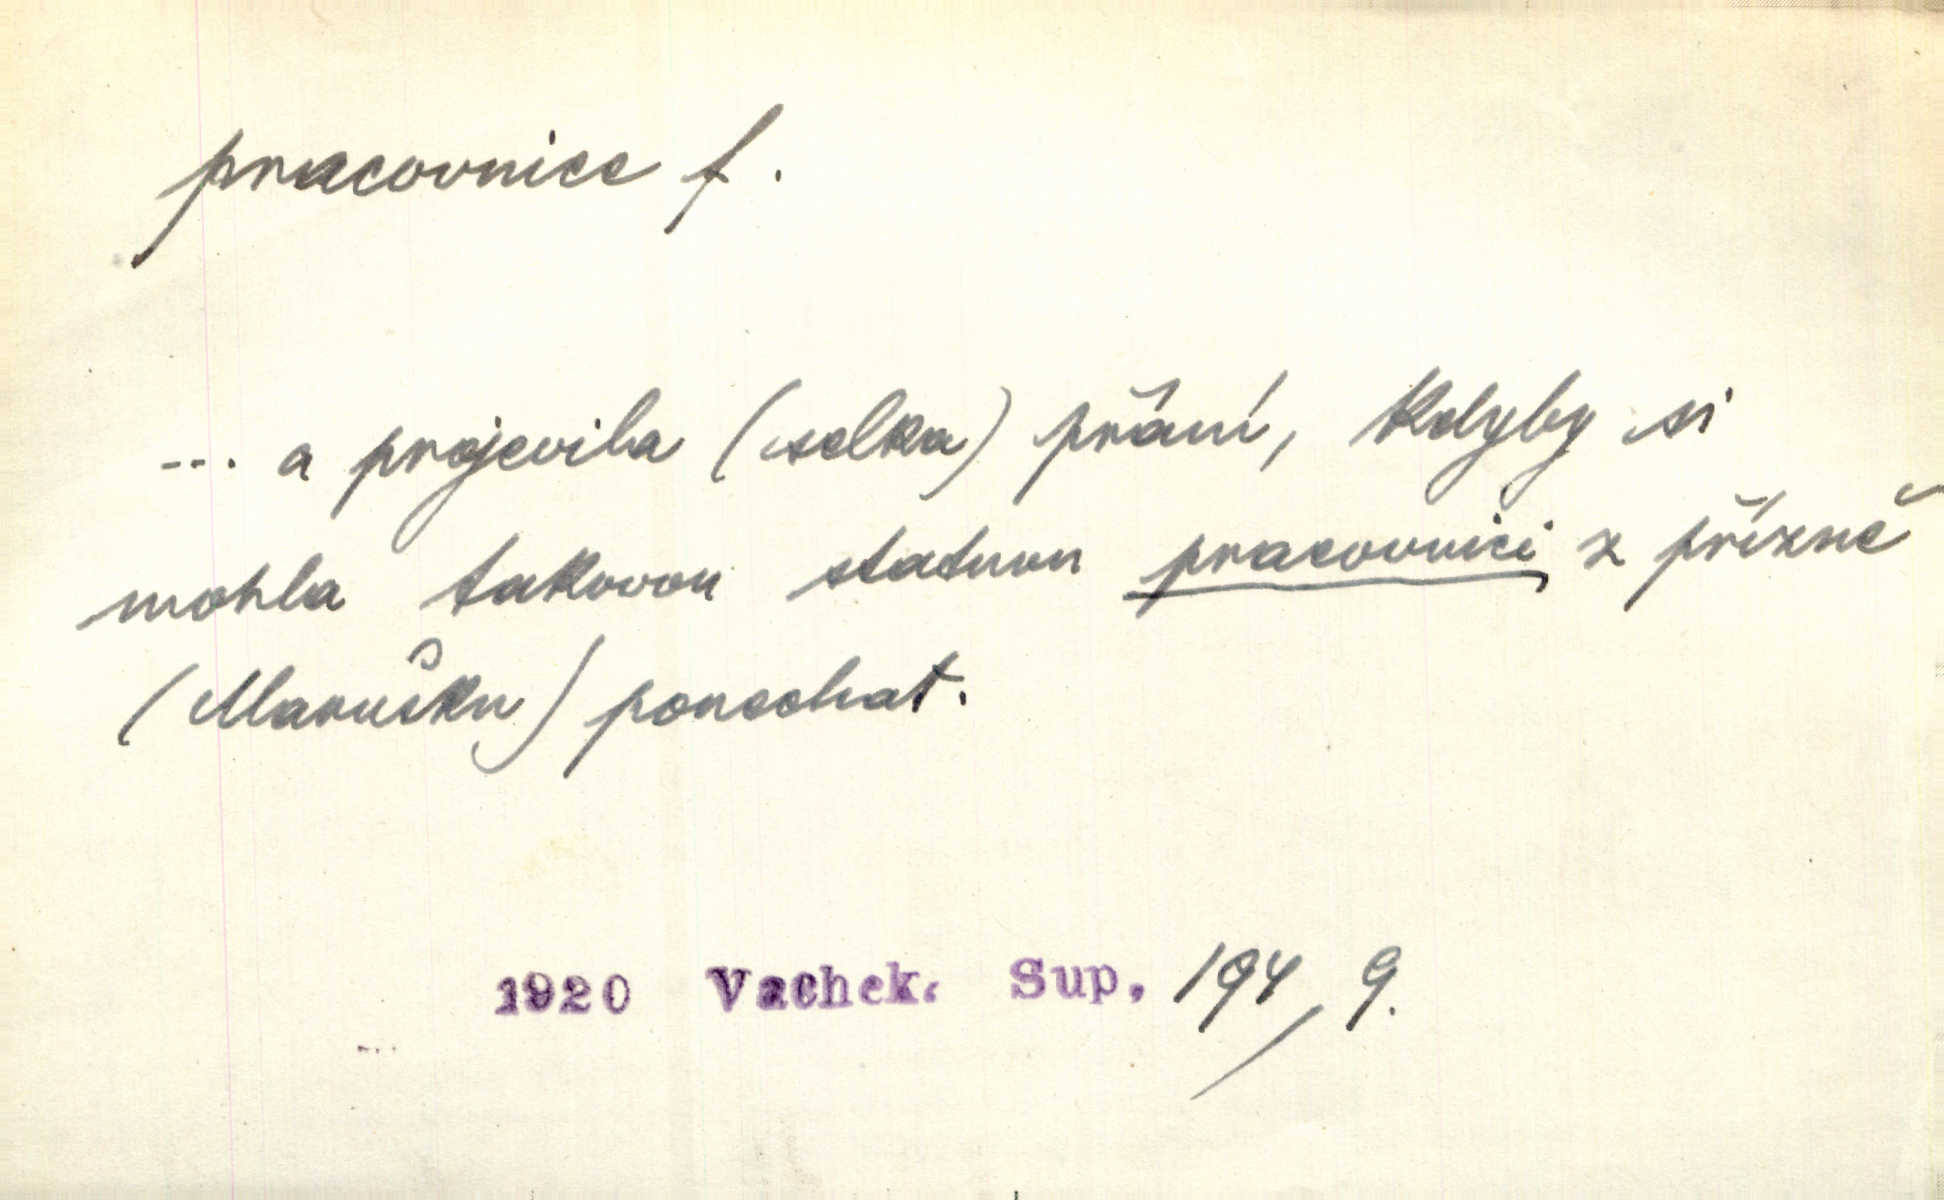 pracovnice f.
... a projevila (selka) přání, kdyby si
mohla takovou statnou pracovnici z přízně
(Marušku) ponechat.
1920 Vachek. Sup. 194, 9.